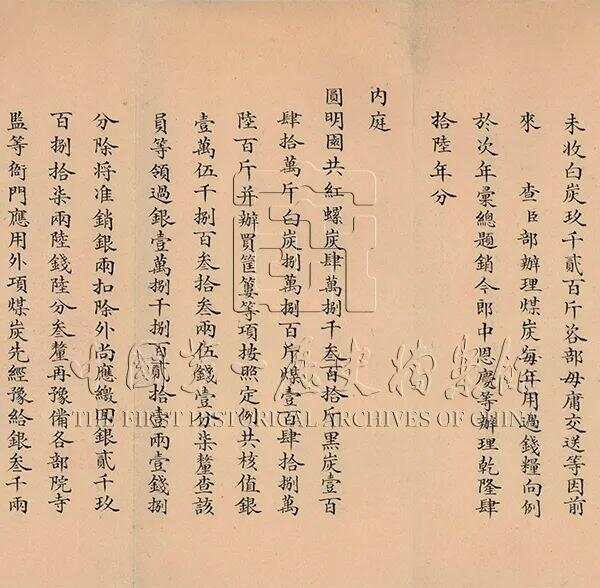 未收白炭玖千貳百斤咨部毋庸交送等因前
來 查臣部辦理煤炭每年用過錢糧向例
於次年彙總題銷今郎中恩慶等辦理乾隆肆
拾陸年分
內庭
圓明園共紅螺炭肆萬捌千叁百拾斤黑炭壹百
肆拾萬斤白炭捌萬捌百斤煤壹百肆拾捌萬
陸百斤并辦買筐簍等項按照定例共核值銀
壹萬伍千捌百叁拾叁兩伍錢壹分柒釐查該
員等領過銀壹萬捌千捌百貳拾壹兩壹錢捌
分除將准銷銀兩扣除外尚應繳回銀貳千玖
百捌拾柒兩陸錢陸分叁釐再豫備各部院寺
監等衙門應用外項煤炭先經豫給銀叁千兩
中國第一歷史檔案館
THE FIRST HISTORICAL ARCHIVES OF CHINA